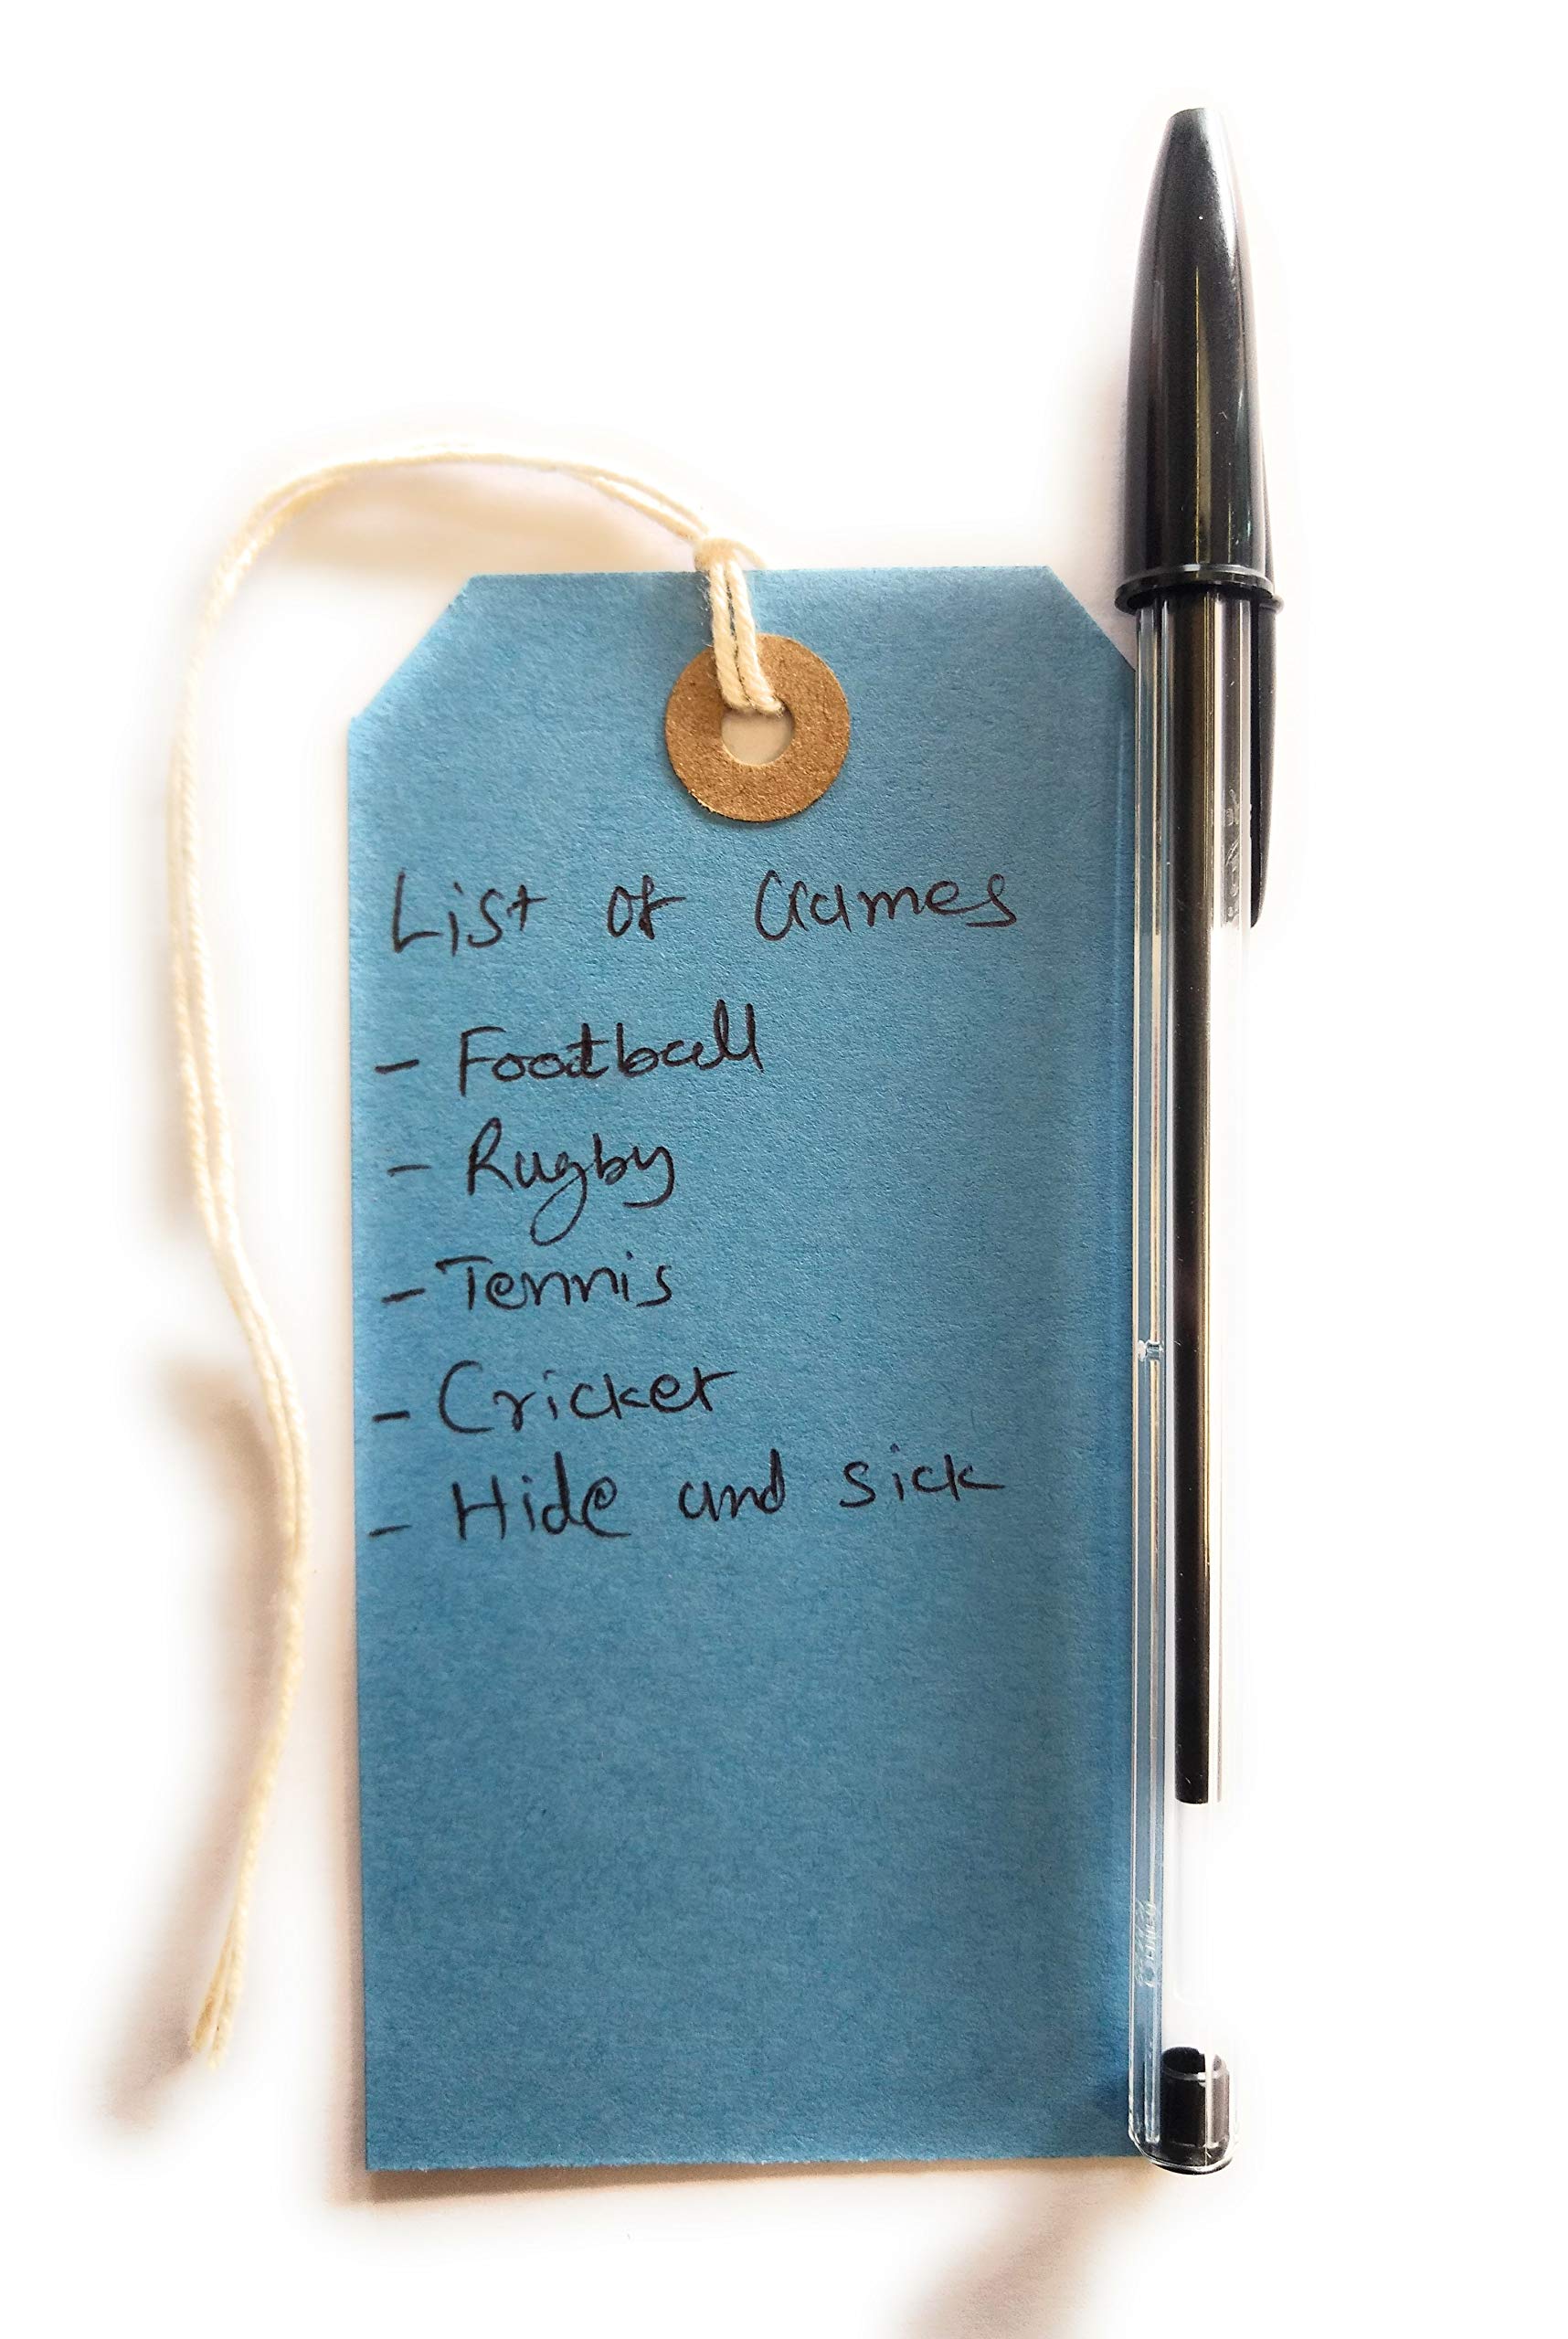 List of Games
- Football
- Rugby
- Tennis
- Cricket
- Hide and sick